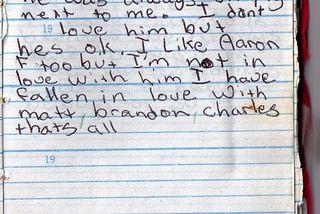 he was always
next to me. I don't
19 love him but
hes ok. I Like Aaron
F too but I'm not in
love with him I have
fallen in love with
matt, brandon, charles
thats all
19